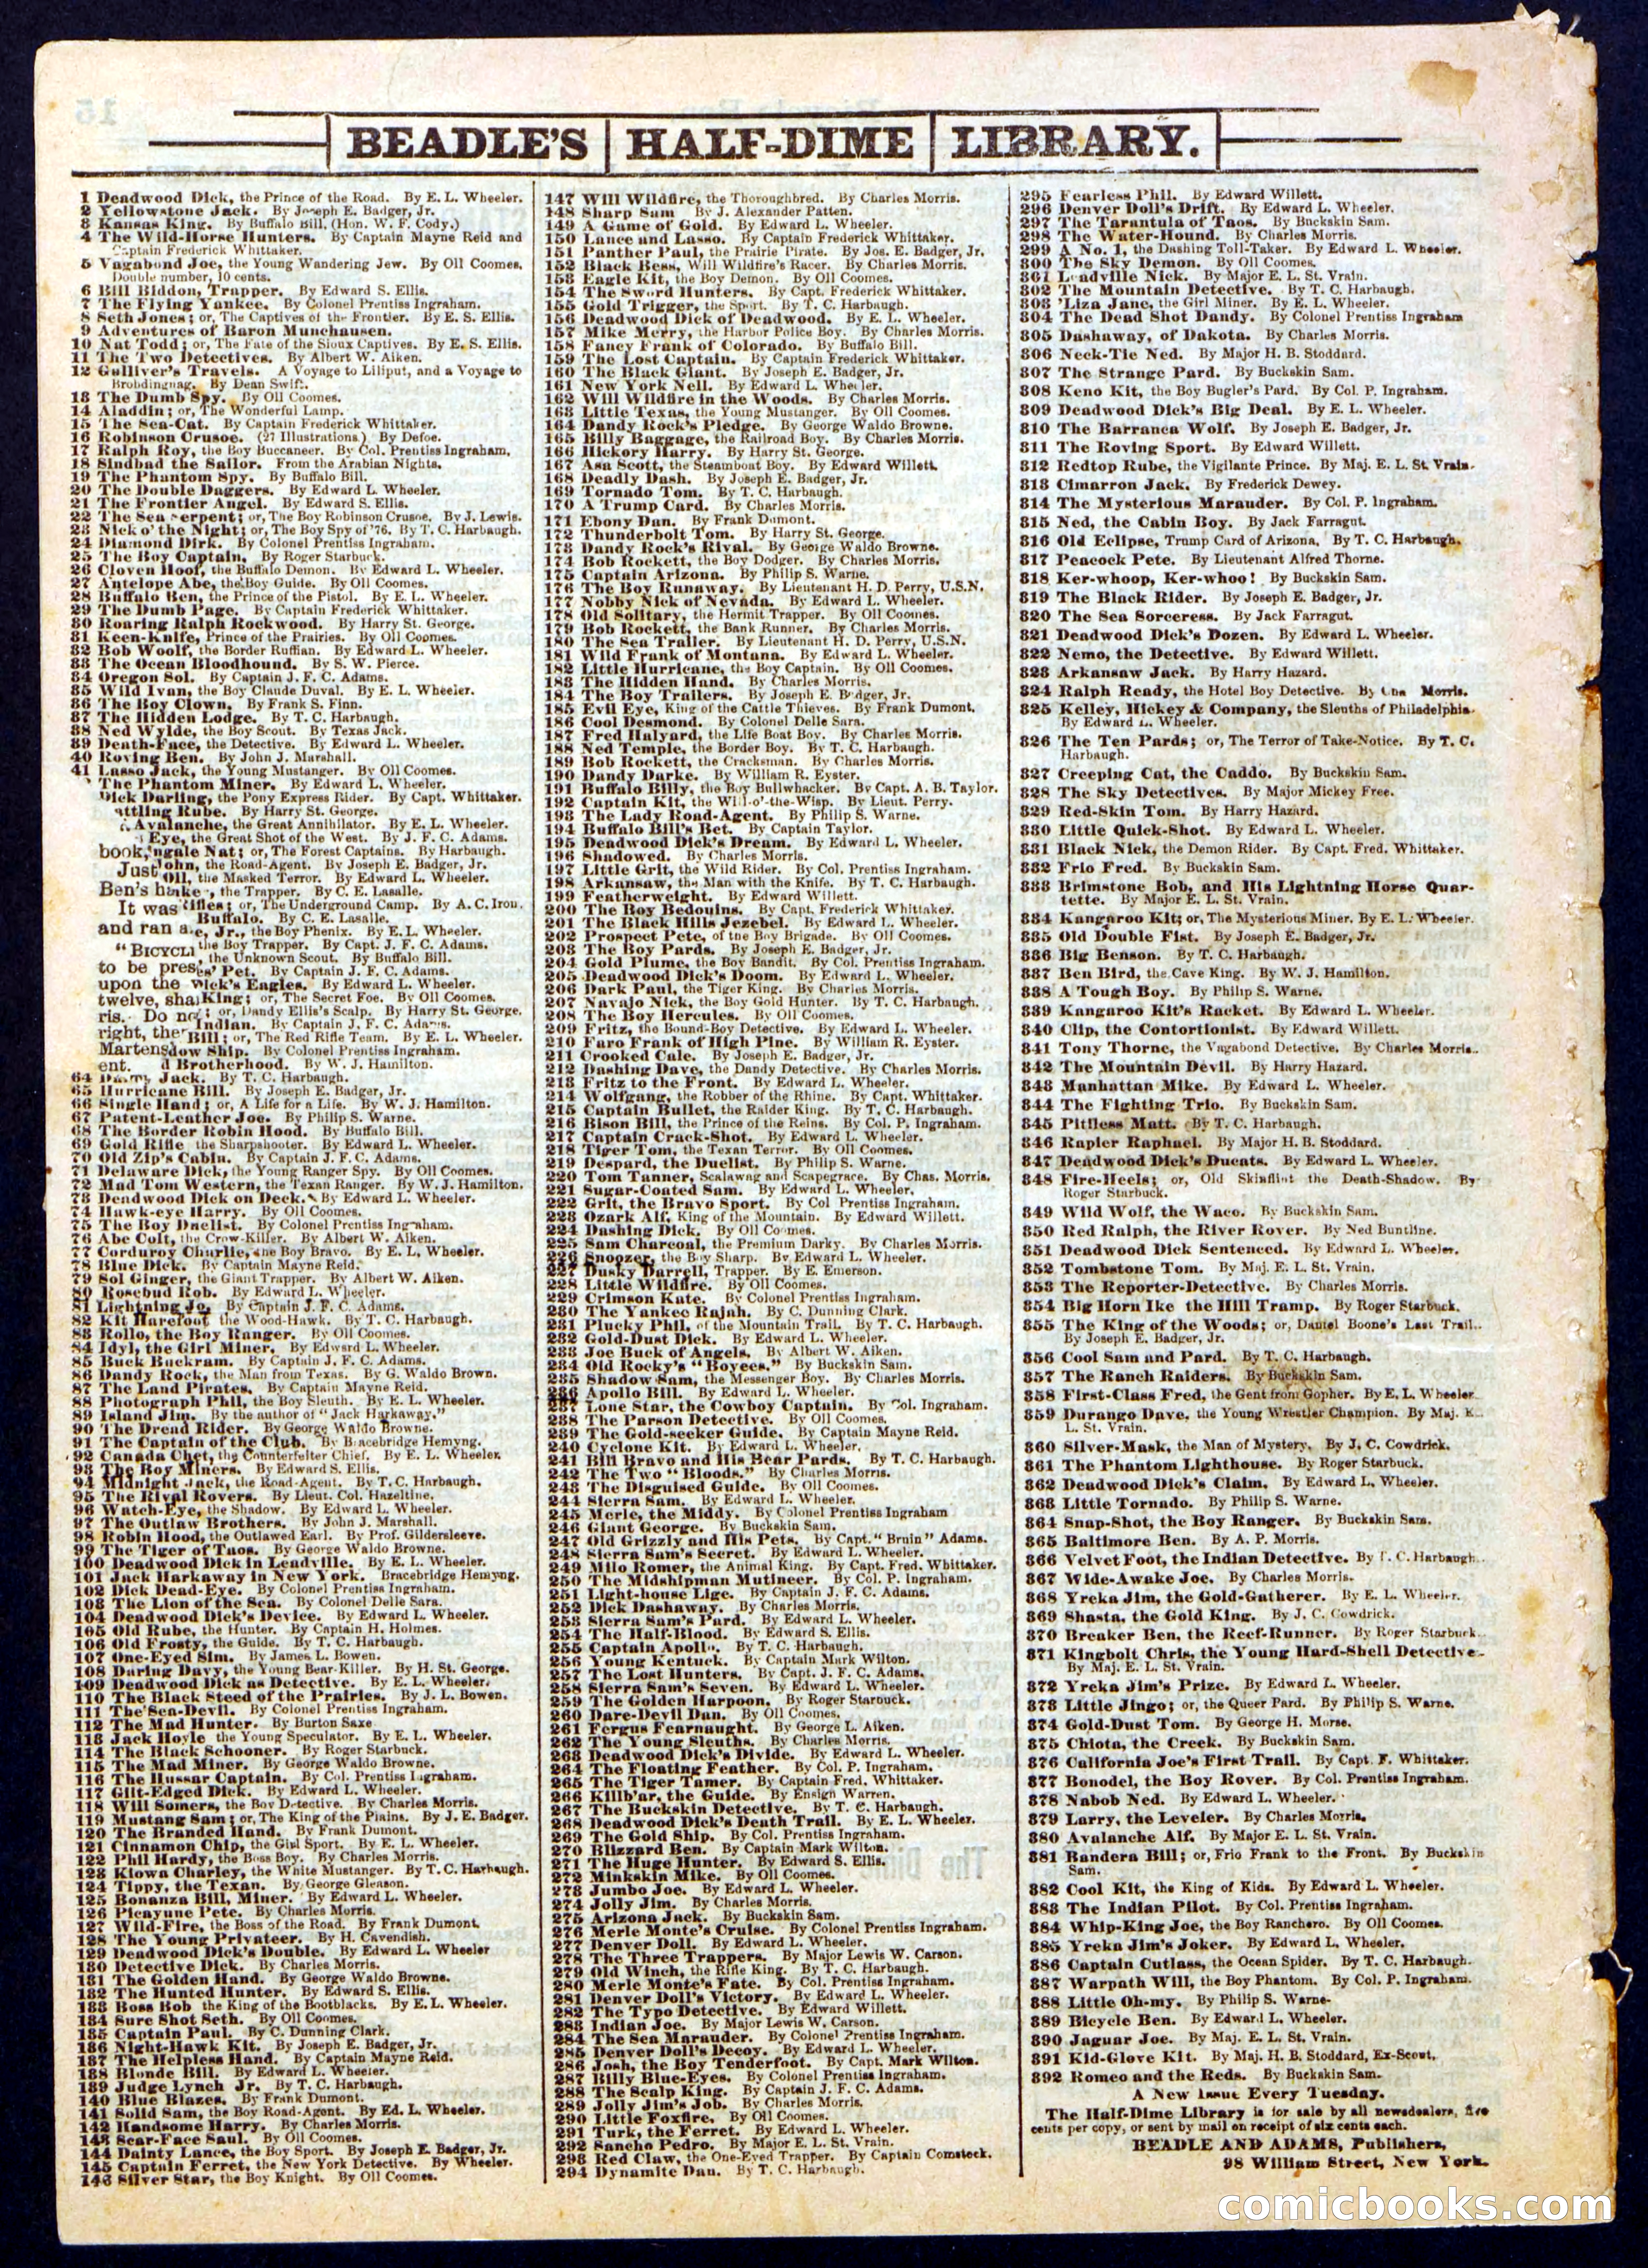 BEADLE'S HALF-DIME LIBRARY.
1 Deadwood Dick, the Prince of the Road. By E. L. Wheeler.
2 Yellowstone Jack. By Joseph E. Badger, Jr.
3 Kansas King. By Buffalo Bill, (Hon. W. F. Cody.)
4 The Wild-Horse Hunters. By Captain Mayne Reid and
Captain Frederick Whittaker.
5 Vagabond Joe, the Young Wandering Jew. By Oll Coomes.
Double number, 10 cents.
6 Bill Biddon, Trapper. By Edward S. Ellis.
7 The Flying Yankee. By Colonel Prentiss Ingraham.
8 Seth Jones; or, The Captives of the Frontier. By E. S. Ellis.
9 Adventures of Baron Munchausen.
10 Nat Todd; or, The Fate of the Sioux Captives. By E. S. Ellis.
11 The Two Detectives. By Albert W. Aiken.
12 Gulliver's Travels. A Voyage to Liliput, and a Voyage to
Brobdingnag. By Dean Swift.
13 The Dumb Spy. By Oll Coomes.
14 Aladdin; or, The Wonderful Lamp.
15 The Sea-Cat. By Captain Frederick Whittaker.
16 Robinson Crusoe. (27 Illustrations.) By Defoe.
17 Ralph Roy, the Boy Buccaneer. By Col. Prentiss Ingraham,
18 Sindbad the Sailor. From the Arabian Nights.
19 The Phantom Spy. By Buffalo Bill.
20 The Double Daggers. By Edward L. Wheeler.
21 The Frontier Angel. By Edward S. Ellis.
22 The Sea Serpent; or, The Boy Robinson Crusoe. By J. Lewis.
23 Nick o' the Night; or, The Boy Spy of '76. By T. C. Harbaugh.
24 Diamond Dirk. By Colonel Prentiss Ingraham.
25 The Boy Captain. By Roger Starbuck.
26 Cloven Hoof, the Buffalo Demon. By Edward L. Wheeler.
27 Antelope Abe, the Boy Guide. By Oll Coomes.
28 Buffalo Ben, the Prince of the Pistol. By E. L. Wheeler.
29 The Dumb Page. By Captain Frederick Whittaker.
30 Roaring Ralph Rockwood. By Harry St. George.
31 Keen-Knife, Prince of the Prairies. By Oll Coomes.
32 Bob Woolf, the Border Ruffian. By Edward L. Wheeler.
33 The Ocean Bloodhound. By S. W. Pierce.
34 Oregon Sol. By Captain J. F. C. Adams.
35 Wild Ivan, the Boy Claude Duval. By E. L. Wheeler.
36 The Boy Clown. By Frank S. Finn.
37 The Hidden Lodge. By T. C. Harbaugh.
38 Ned Wylde, the Boy Scout. By Texas Jack.
39 Death-Face, the Detective. By Edward L. Wheeler.
40 Roving Ben. By John J. Marshall.
41 Lasso Jack, the Young Mustanger. By Oll Coomes.
The Phantom Miner. By Edward L. Wheeler.
Dick Darling, the Pony Express Rider. By Capt. Whittaker.
attling Rube. By Harry St. George.
Avalanche, the Great Annihilator. By E. L. Wheeler.
Eye, the Great Shot of the West. By J. F. C. Adams.
book, ngale Nat; or, The Forest Captains. By Harbaugh.
Just John, the Road-Agent. By Joseph E. Badger, Jr.
Oll, the Masked Terror. By Edward L. Wheeler.
Ben's b ke, the Trapper. By C. E. Lasalle.
It was Rifles; or, The Underground Camp. By A. C. Iron.
Buffalo. By C. E. Lasalle.
and ran a e, Jr., the Boy Phenix. By E. L. Wheeler.
"BICYCL the Boy Trapper. By Capt. J. F. C. Adams.
, the Unknown Scout. By Buffalo Bill.
to be pres s' Pet. By Captain J. F. C. Adams.
upon the Dick's Eagles. By Edward L. Wheeler.
twelve, sha King; or, The Secret Foe. By Oll Coomes.
ris. Do no ; or, Dandy Ellis's Scalp. By Harry St. George.
Indian. By Captain J. F. C. Adams.
right, the Bill; or, The Red Rifle Team. By E. L. Wheeler.
Martens dow Ship. By Colonel Prentiss Ingraham.
ent. d Brotherhood. By W. J. Hamilton.
64 Dandy Jack. By T. C. Harbaugh.
65 Hurricane Bill. By Joseph E. Badger, Jr.
66 Single Hand; or, A Life for a Life. By W. J. Hamilton.
67 Patent-Leather Joe. By Philip S. Warne.
68 The Border Robin Hood. By Buffalo Bill.
69 Gold Rifle the Sharpshooter. By Edward L. Wheeler.
70 Old Zip's Cabin. By Captain J. F. C. Adams.
71 Delaware Dick, the Young Ranger Spy. By Oll Coomes.
72 Mad Tom Western, the Texan Ranger. By W. J. Hamilton.
73 Deadwood Dick on Deck. By Edward L. Wheeler.
74 Hawk-eye Harry. By Oll Coomes.
75 The Boy Duelist. By Colonel Prentiss Ingraham.
76 Abe Colt, the Crow-Killer. By Albert W. Aiken.
77 Corduroy Charlie, the Boy Bravo. By E. L. Wheeler.
78 Blue Dick. By Captain Mayne Reid.
79 Sol Ginger, the Giant Trapper. By Albert W. Aiken.
80 Rosebud Rob. By Edward L. Wheeler.
81 Lightning Jo. By Captain J. F. C. Adams.
82 Kit Harefoot the Wood-Hawk. By T. C. Harbaugh.
83 Rollo, the Boy Ranger. By Oll Coomes.
84 Idyl, the Girl Miner. By Edward L. Wheeler.
85 Buck Buckram. By Captain J. F. C. Adams.
86 Dandy Rock, the Man from Texas. By G. Waldo Brown.
87 The Land Pirates. By Captain Mayne Reid.
88 Photograph Phil, the Boy Sleuth. By E. L. Wheeler.
89 Island Jim. By the author of "Jack Harkaway."
90 The Dread Rider. By George Waldo Browne.
91 The Captain of the Club. By Bracebridge Hemyng.
92 Canada Chet, the Counterfeiter Chief. By E. L. Wheeler.
93 The Boy Miners. By Edward S. Ellis.
94 Midnight Jack, the Road-Agent. By T. C. Harbaugh.
95 The Rival Rovers. By Lieut. Col. Hazeltine.
96 Watch-Eye, the Shadow. By Edward L. Wheeler.
97 The Outlaw Brothers. By John J. Marshall.
98 Robin Hood, the Outlawed Earl. By Prof. Gildersleeve.
99 The Tiger of Taos. By George Waldo Browne.
100 Deadwood Dick in Leadville. By E. L. Wheeler.
101 Jack Harkaway in New York. Bracebridge Hemyng.
102 Dick Dead-Eye. By Colonel Prentiss Ingraham.
103 The Lion of the Sea. By Colonel Delle Sara.
104 Deadwood Dick's Device. By Edward L. Wheeler.
105 Old Rube, the Hunter. By Captain H. Holmes.
106 Old Frosty, the Guide. By T. C. Harbaugh.
107 One-Eyed Sim. By James L. Bowen.
108 Daring Davy, the Young Bear-Killer. By H. St. George.
109 Deadwood Dick as Detective. By E. L. Wheeler.
110 The Black Steed of the Prairies. By J. L. Bowen.
111 The Sea-Devil. By Colonel Prentiss Ingraham.
112 The Mad Hunter. By Burton Saxe
113 Jack Hoyle the Young Speculator. By E. L. Wheeler.
114 The Black Schooner. By Roger Starbuck.
115 The Mad Miner. By George Waldo Browne.
116 The Hussar Captain. By Col. Prentiss Ingraham.
117 Gilt-Edged Dick. By Edward L. Wheeler.
118 Will Somers, the Boy Detective. By Charles Morris.
119 Mustang Sam; or, The King of the Plains. By J. E. Badger.
120 The Branded Hand. By Frank Dumont.
121 Cinnamon Chip, the Girl Sport. By E. L. Wheeler.
122 Phil Hardy, the Boss Boy. By Charles Morris.
123 Kiowa Charley, the White Mustanger. By T. C. Harbaugh.
124 Tippy, the Texan. By George Gleason.
125 Bonanza Bill, Miner. By Edward L. Wheeler.
126 Picayune Pete. By Charles Morris.
127 Wild-Fire, the Boss of the Road. By Frank Dumont.
128 The Young Privateer. By H. Cavendish.
129 Deadwood Dick's Double. By Edward L. Wheeler
130 Detective Dick. By Charles Morris.
131 The Golden Hand. By George Waldo Browne.
132 The Hunted Hunter. By Edward S. Ellis.
133 Boss Bob the King of the Bootblacks. By E. L. Wheeler.
134 Sure Shot Seth. By Oll Coomes.
135 Captain Paul. By C. Dunning Clark.
136 Night-Hawk Kit. By Joseph E. Badger, Jr.
137 The Helpless Hand. By Captain Mayne Reid.
138 Blonde Bill. By Edward L. Wheeler.
139 Judge Lynch Jr. By T. C. Harbaugh.
140 Blue Blazes. By Frank Dumont.
141 Solid Sam, the Boy Road-Agent. By Ed. L. Wheeler.
142 Handsome Harry. By Charles Morris.
143 Scar-Face Saul. By Oll Coomes.
144 Dainty Lance, the Boy Sport. By Joseph E. Badger, Jr.
145 Captain Ferret, the New York Detective. By Wheeler.
146 Silver Star, the Boy Knight. By Oll Coomes.
147 Will Wildfire, the Thoroughbred. By Charles Morris.
148 Sharp Sam By J. Alexander Patten.
149 A Game of Gold. By Edward L. Wheeler.
150 Lance and Lasso. By Captain Frederick Whittaker.
151 Panther Paul, the Prairie Pirate. By Jos. E. Badger, Jr.
152 Black Bess, Will Wildfire's Racer. By Charles Morris.
153 Eagle Kit, the Boy Demon. By Oll Coomes.
154 The Sword Hunters. By Capt. Frederick Whittaker.
155 Gold Trigger, the Sport. By T. C. Harbaugh.
156 Deadwood Dick of Deadwood. By E. L. Wheeler.
157 Mike Merry, the Harbor Police Boy. By Charles Morris.
158 Fancy Frank of Colorado. By Buffalo Bill.
159 The Lost Captain. By Captain Frederick Whittaker.
160 The Black Giant. By Joseph E. Badger, Jr.
161 New York Nell. By Edward L. Wheeler.
162 Will Wildfire in the Woods. By Charles Morris.
163 Little Texas, the Young Mustanger. By Oll Coomes.
164 Dandy Rock's Pledge. By George Waldo Browne.
165 Billy Baggage, the Railroad Boy. By Charles Morris.
166 Hickory Harry. By Harry St. George.
167 Asa Scott, the Steamboat Boy. By Edward Willett.
168 Deadly Dash. By Joseph E. Badger, Jr.
169 Tornado Tom. By T. C. Harbaugh.
170 A Trump Card. By Charles Morris.
171 Ebony Dan. By Frank Dumont.
172 Thunderbolt Tom. By Harry St. George.
173 Dandy Rock's Rival. By George Waldo Browne.
174 Bob Rockett, the Boy Dodger. By Charles Morris.
175 Captain Arizona. By Philip S. Warne.
176 The Boy Runaway. By Lieutenant H. D. Perry, U.S.N.
177 Nobby Nick of Nevada. By Edward L. Wheeler.
178 Old Solitary, the Hermit Trapper. By Oll Coomes.
179 Bob Rockett, the Bank Runner. By Charles Morris.
180 The Sea Trailer. By Lieutenant H. D. Perry, U.S.N.
181 Wild Frank of Montana. By Edward L. Wheeler.
182 Little Hurricane, the Boy Captain. By Oll Coomes.
183 The Hidden Hand. By Charles Morris.
184 The Boy Trailers. By Joseph E. Badger, Jr.
185 Evil Eye, King of the Cattle Thieves. By Frank Dumont.
186 Cool Desmond. By Colonel Delle Sara.
187 Fred Halyard, the Life Boat Boy. By Charles Morris.
188 Ned Temple, the Border Boy. By T. C. Harbaugh.
189 Bob Rockett, the Cracksman. By Charles Morris.
190 Dandy Darke. By William R. Eyster.
191 Buffalo Billy, the Boy Bullwhacker. By Capt. A. B. Taylor.
192 Captain Kit, the Will-o'-the-Wisp. By Lieut. Perry.
193 The Lady Road-Agent. By Philip S. Warne.
194 Buffalo Bill's Bet. By Captain Taylor.
195 Deadwood Dick's Dream. By Edward L. Wheeler.
196 Shadowed. By Charles Morris.
197 Little Grit, the Wild Rider. By Col. Prentiss Ingraham.
198 Arkansaw, the Man with the Knife. By T. C. Harbaugh.
199 Featherweight. By Edward Willett.
200 The Boy Bedouins. By Capt. Frederick Whittaker.
201 The Black Hills Jezebel. By Edward L. Wheeler.
202 Prospect Pete, of the Boy Brigade. By Oll Coomes.
203 The Boy Pards. By Joseph E. Badger, Jr.
204 Gold Plume, the Boy Bandit. By Col. Prentiss Ingraham.
205 Deadwood Dick's Doom. By Edward L. Wheeler.
206 Dark Paul, the Tiger King. By Charles Morris.
207 Navajo Nick, the Boy Gold Hunter. By T. C. Harbaugh.
208 The Boy Hercules. By Oll Coomes.
209 Fritz, the Bound-Boy Detective. By Edward L. Wheeler.
210 Faro Frank of High Pine. By William R. Eyster.
211 Crooked Cale. By Joseph E. Badger, Jr.
212 Dashing Dave, the Dandy Detective. By Charles Morris.
213 Fritz to the Front. By Edward L. Wheeler.
214 Wolfgang, the Robber of the Rhine. By Capt. Whittaker.
215 Captain Bullet, the Raider King. By T. C. Harbaugh.
216 Bison Bill, the Prince of the Reins. By Col. P. Ingraham.
217 Captain Crack-Shot. By Edward L. Wheeler.
218 Tiger Tom, the Texan Terror. By Oll Coomes.
219 Despard, the Duelist. By Philip S. Warne.
220 Tom Tanner, Scalawag and Scapegrace. By Chas. Morris.
221 Sugar-Coated Sam. By Edward L. Wheeler.
222 Grit, the Bravo Sport. By Col Prentiss Ingraham.
223 Ozark Alf, King of the Mountain. By Edward Willett.
224 Dashing Dick. By Oll Coomes.
225 Sam Charcoal, the Premium Darky. By Charles Morris.
226 Snoozer, the Boy Sharp. By Edward L. Wheeler.
227 Dusky Darrell, Trapper. By E. Emerson.
228 Little Wildfire. By Oll Coomes.
229 Crimson Kate. By Colonel Prentiss Ingraham.
230 The Yankee Rajah. By C. Dunning Clark.
231 Plucky Phil, of the Mountain Trail. By T. C. Harbaugh.
232 Gold-Dust Dick. By Edward L. Wheeler.
233 Joe Buck of Angels. By Albert W. Aiken.
234 Old Rocky's "Boyees." By Buckskin Sam.
235 Shadow Sam, the Messenger Boy. By Charles Morris.
236 Apollo Bill. By Edward L. Wheeler.
237 Lone Star, the Cowboy Captain. By Col. Ingraham.
238 The Parson Detective. By Oll Coomes.
239 The Gold-seeker Guide. By Captain Mayne Reid.
240 Cyclone Kit. By Edward L. Wheeler.
241 Bill Bravo and His Bear Pards. By T. C. Harbaugh.
242 The Two "Bloods." By Charles Morris.
243 The Disguised Guide. By Oll Coomes.
244 Sierra Sam. By Edward L. Wheeler.
245 Merle, the Middy. By Colonel Prentiss Ingraham
246 Giant George. By Buckskin Sam.
247 Old Grizzly and His Pets. By Capt. "Bruin" Adams.
248 Sierra Sam's Secret. By Edward L. Wheeler.
249 Milo Romer, the Animal King. By Capt. Fred. Whittaker.
250 The Midshipman Mutineer. By Col. P. Ingraham.
251 Light-house Lige. By Captain J. F. C. Adams.
252 Dick Dashaway. By Charles Morris.
253 Sierra Sam's Pard. By Edward L. Wheeler.
254 The Half-Blood. By Edward S. Ellis.
255 Captain Apollo. By T. C. Harbaugh.
256 Young Kentuck. By Captain Mark Wilton.
257 The Lost Hunters. By Capt. J. F. C. Adams.
258 Sierra Sam's Seven. By Edward L. Wheeler.
259 The Golden Harpoon. By Roger Starbuck.
260 Dare-Devil Dan. By Oll Coomes.
261 Fergus Fearnaught. By George L. Aiken.
262 The Young Sleuths. By Charles Morris.
263 Deadwood Dick's Divide. By Edward L. Wheeler.
264 The Floating Feather. By Col. P. Ingraham.
265 The Tiger Tamer. By Captain Fred. Whittaker.
266 Killb'ar, the Guide. By Ensign Warren.
267 The Buckskin Detective. By T. C. Harbaugh.
268 Deadwood Dick's Death Trail. By E. L. Wheeler.
269 The Gold Ship. By Col. Prentiss Ingraham.
270 Blizzard Ben. By Captain Mark Wilton.
271 The Huge Hunter. By Edward S. Ellis.
272 Minkskin Mike. By Oll Coomes.
273 Jumbo Joe. By Edward L. Wheeler.
274 Jolly Jim. By Charles Morris.
275 Arizona Jack. By Buckskin Sam.
276 Merle Monte's Cruise. By Colonel Prentiss Ingraham.
277 Denver Doll. By Edward L. Wheeler.
278 The Three Trappers. By Major Lewis W. Carson.
279 Old Winch, the Rifle King. By T. C. Harbaugh.
280 Merle Monte's Fate. By Col. Prentiss Ingraham.
281 Denver Doll's Victory. By Edward L. Wheeler.
282 The Typo Detective. By Edward Willett.
283 Indian Joe. By Major Lewis W. Carson.
284 The Sea Marauder. By Colonel Prentiss Ingraham.
285 Denver Doll's Decoy. By Edward L. Wheeler.
286 Josh, the Boy Tenderfoot. By Capt. Mark Wilton.
287 Billy Blue-Eyes. By Colonel Prentiss Ingraham.
288 The Scalp King. By Captain J. F. C. Adams.
289 Jolly Jim's Job. By Charles Morris.
290 Little Foxfire. By Oll Coomes.
291 Turk, the Ferret. By Edward L. Wheeler.
292 Sancho Pedro. By Major E. L. St. Vrain.
293 Red Claw, the One-Eyed Trapper. By Captain Comstock.
294 Dynamite Dan. By T. C. Harbaugh.
295 Fearless Phil. By Edward Willett.
296 Denver Doll's Drift. By Edward L. Wheeler.
297 The Tarantula of Taos. By Buckskin Sam.
298 The Water-Hound. By Charles Morris.
299 A No. 1, the Dashing Toll-Taker. By Edward L. Wheeler.
300 The Sky Demon. By Oll Coomes.
301 Leadville Nick. By Major E. L. St. Vrain.
302 The Mountain Detective. By T. C. Harbaugh.
303 'Liza Jane, the Girl Miner. By E. L. Wheeler.
304 The Dead Shot Dandy. By Colonel Prentiss Ingraham
305 Dashaway, of Dakota. By Charles Morris.
306 Neck-Tie Ned. By Major H. B. Stoddard.
307 The Strange Pard. By Buckskin Sam.
308 Keno Kit, the Boy Bugler's Pard. By Col. P. Ingraham.
309 Deadwood Dick's Big Deal. By E. L. Wheeler.
310 The Barranca Wolf. By Joseph E. Badger, Jr.
311 The Roving Sport. By Edward Willett.
312 Redtop Rube, the Vigilante Prince. By Maj. E. L. St. Vrain.
313 Cimarron Jack. By Frederick Dewey.
314 The Mysterious Marauder. By Col. P. Ingraham.
315 Ned, the Cabin Boy. By Jack Farragut.
316 Old Eclipse, Trump Card of Arizona. By T. C. Harbaugh.
317 Peacock Pete. By Lieutenant Alfred Thorne.
318 Ker-whoop, Ker-whoo! By Buckskin Sam.
319 The Black Rider. By Joseph E. Badger, Jr.
320 The Sea Sorceress. By Jack Farragut.
321 Deadwood Dick's Dozen. By Edward L. Wheeler.
322 Nemo, the Detective. By Edward Willett.
323 Arkansaw Jack. By Harry Hazard.
324 Ralph Ready, the Hotel Boy Detective. By Morris.
325 Kelley, Hickey & Company, the Sleuths of Philadelphia.
By Edward L. Wheeler.
326 The Ten Pards; or, The Terror of Take-Notice. By T. C.
Harbaugh.
327 Creeping Cat, the Caddo. By Buckskin Sam.
328 The Sky Detectives. By Major Mickey Free.
329 Red-Skin Tom. By Harry Hazard.
330 Little Quick-Shot. By Edward L. Wheeler.
331 Black Nick, the Demon Rider. By Capt. Fred. Whittaker.
332 Frio Fred. By Buckskin Sam.
333 Brimstone Bob, and His Lightning Horse Quar-
tette. By Major E. L. St. Vrain.
334 Kangaroo Kit; or, The Mysterious Miner. By E. L. Wheeler.
335 Old Double Fist. By Joseph E. Badger, Jr.
336 Big Benson. By T. C. Harbaugh.
337 Ben Bird, the Cave King. By W. J. Hamilton.
338 A Tough Boy. By Philip S. Warne.
339 Kangaroo Kit's Racket. By Edward L. Wheeler.
340 Clip, the Contortionist. By Edward Willett.
341 Tony Thorne, the Vagabond Detective. By Charles Morris.
342 The Mountain Devil. By Harry Hazard.
343 Manhattan Mike. By Edward L. Wheeler.
344 The Fighting Trio. By Buckskin Sam.
345 Pitiless Matt. By T. C. Harbaugh.
346 Rapier Raphael. By Major H. B. Stoddard.
347 Deadwood Dick's Ducats. By Edward L. Wheeler.
348 Fire-Heels; or, Old Skinflint the Death-Shadow. By
Roger Starbuck.
349 Wild Wolf, the Waco. By Buckskin Sam.
350 Red Ralph, the River Rover. By Ned Buntline.
351 Deadwood Dick Sentenced. By Edward L. Wheeler.
352 Tombstone Tom. By Maj. E. L. St. Vrain.
353 The Reporter-Detective. By Charles Morris.
354 Big Horn Ike the Hill Tramp. By Roger Starbuck.
355 The King of the Woods; or, Daniel Boone's Last Trail.
By Joseph E. Badger, Jr.
356 Cool Sam and Pard. By T. C. Harbaugh.
357 The Ranch Raiders. By Buckskin Sam.
358 First-Class Fred, the Gent from Gopher. By E. L. Wheeler
359 Durango Dave, the Young Wrestler Champion. By Maj. E.
L. St. Vrain.
360 Silver-Mask, the Man of Mystery. By J. C. Cowdrick.
361 The Phantom Lighthouse. By Roger Starbuck.
362 Deadwood Dick's Claim. By Edward L. Wheeler.
363 Little Tornado. By Philip S. Warne.
364 Snap-Shot, the Boy Ranger. By Buckskin Sam.
365 Baltimore Ben. By A. P. Morris.
366 Velvet Foot, the Indian Detective. By T. C. Harbaugh.
367 Wide-Awake Joe. By Charles Morris.
368 Yreka Jim, the Gold-Gatherer. By E. L. Wheeler.
369 Shasta, the Gold King. By J. C. Cowdrick.
370 Breaker Ben, the Reef-Runner. By Roger Starbuck.
371 Kingbolt Chris, the Young Hard-Shell Detective.
By Maj. E. L. St. Vrain.
372 Yreka Jim's Prize. By Edward L. Wheeler.
373 Little Jingo; or, the Queer Pard. By Philip S. Warne.
374 Gold-Dust Tom. By George H. Morse.
375 Chiota, the Creek. By Buckskin Sam.
376 California Joe's First Trail. By Capt. F. Whittaker.
377 Bonodel, the Boy Rover. By Col. Prentiss Ingraham.
378 Nabob Ned. By Edward L. Wheeler.
379 Larry, the Leveler. By Charles Morris.
380 Avalanche Alf. By Major E. L. St. Vrain.
381 Bandera Bill; or, Frio Frank to the Front. By Buckskin
Sam.
382 Cool Kit, the King of Kids. By Edward L. Wheeler.
383 The Indian Pilot. By Col. Prentiss Ingraham.
384 Whip-King Joe, the Boy Ranchero. By Oll Coomes.
385 Yreka Jim's Joker. By Edward L. Wheeler.
386 Captain Cutlass, the Ocean Spider. By T. C. Harbaugh.
387 Warpath Will, the Boy Phantom. By Col. P. Ingraham.
388 Little Oh-my. By Philip S. Warne.
389 Bicycle Ben. By Edward L. Wheeler.
390 Jaguar Joe. By Maj. E. L. St. Vrain.
391 Kid-Glove Kit. By Maj. H. B. Stoddard, Ex-Scout.
392 Romeo and the Reds. By Buckskin Sam.
A New Issue Every Tuesday.
The Half-Dime Library is for sale by all newsdealers, five
cents per copy, or sent by mail on receipt of six cents each.
BEADLE AND ADAMS, Publishers,
98 William Street, New York.
comicbooks.com